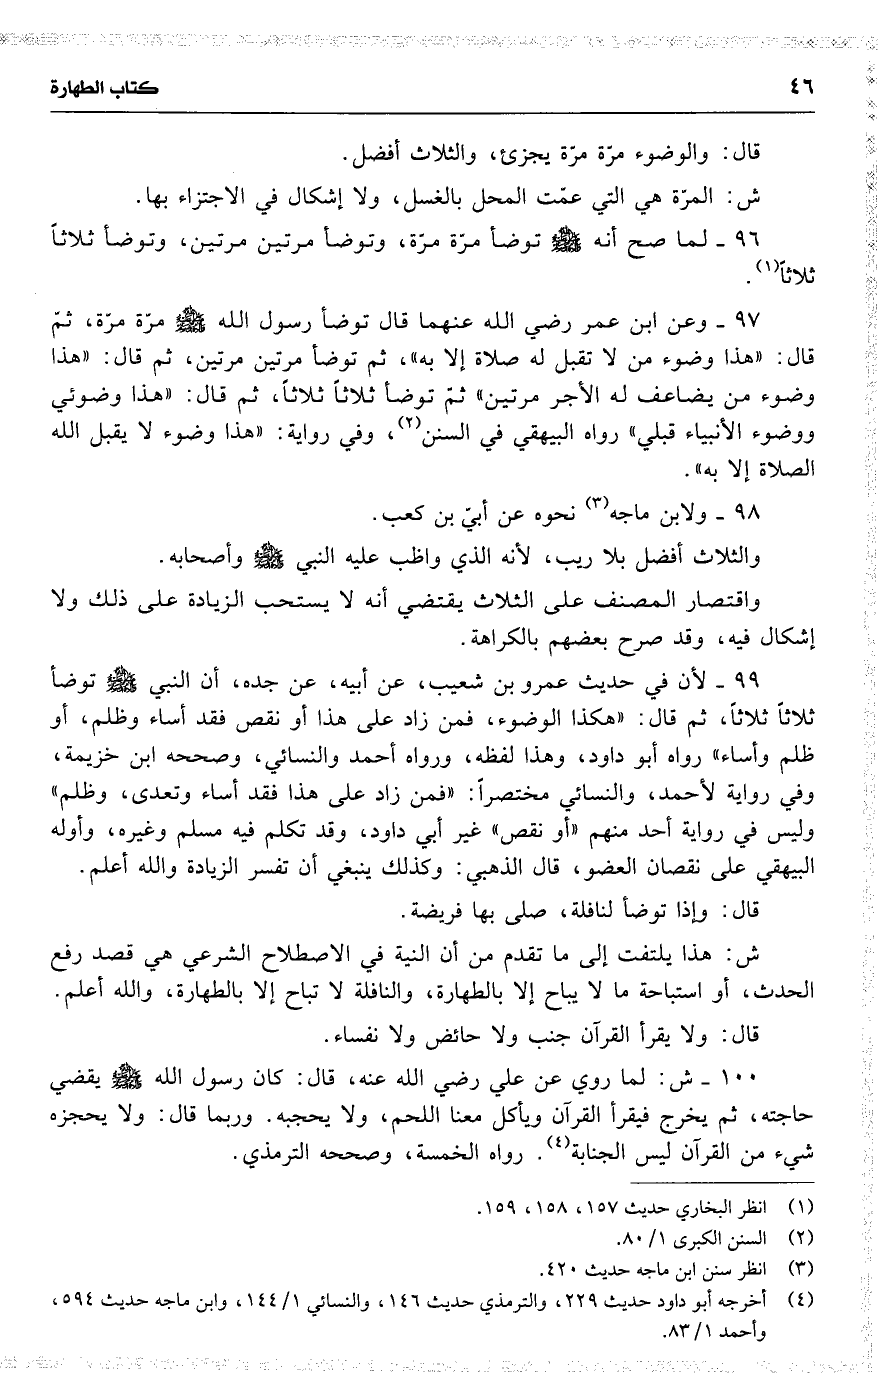 ٤٦
كتاب الطهارة
قال: والوضوء مرّة مرّة يجزئ، والثلاث أفضل.
ش: المرّة هي التي عمّت المحل بالغسل، ولا إشكال في الاجتزاء بها.
٩٦ ـ لما صح أنه ﷺ توضأ مرّة مرة، وتوضأ مرتين مرتين، وتوضأ ثلاثاً
ثلاثاً(١).
٩٧ ـ وعن ابن عمر رضي الله عنهما قال توضأ رسول الله ﷺ مرّة مرّة، ثمّ
قال: «هذا وضوء من لا تقبل له صلاة إلا به»، ثم توضأ مرتين مرتين، ثم قال: «هذا
وضوء من يضاعف له الأجر مرتين» ثمّ توضأ ثلاثاً ثلاثاً، ثم قال: «هذا وضوئي
ووضوء الأنبياء قبلي» رواه البيهقي في السنن(٢)، وفي رواية: «هذا وضوء لا يقبل الله
الصلاة إلا به».
٩٨ ـ ولابن ماجه(٣) نحوه عن أبيّ بن كعب.
والثلاث أفضل بلا ريب، لأنه الذي واظب عليه النبي ﷺ وأصحابه.
واقتصار المصنف على الثلاث يقتضي أنه لا يستحب الزيادة على ذلك ولا
إشكال فيه، وقد صرح بعضهم بالكراهة.
٩٩ ـ لأن في حديث عمرو بن شعيب، عن أبيه، عن جده، أن النبي ﷺ توضأ
ثلاثاً ثلاثاً، ثم قال: «هكذا الوضوء، فمن زاد على هذا أو نقص فقد أساء وظلم، أو
ظلم وأساء» رواه أبو داود، وهذا لفظه، ورواه أحمد والنسائي، وصححه ابن خزيمة،
وفي رواية لأحمد، والنسائي مختصراً: «فمن زاد على هذا فقد أساء وتعدى، وظلم»
وليس في رواية أحد منهم «أو نقص» غير أبي داود، وقد تكلم فيه مسلم وغيره، وأوله
البيهقي على نقصان العضو، قال الذهبي: وكذلك ينبغي أن تفسر الزيادة والله أعلم.
قال: وإذا توضأ لنافلة، صلى بها فريضة.
ش: هذا يلتفت إلى ما تقدم من أن النية في الاصطلاح الشرعي هي قصد رفع
الحدث، أو استباحة ما لا يباح إلا بالطهارة، والنافلة لا تباح إلا بالطهارة، والله أعلم.
قال: ولا يقرأ القرآن جنب ولا حائض ولا نفساء.
١٠٠ ـ ش: لما روي عن علي رضي الله عنه، قال: كان رسول الله ﷺ يقضي
حاجته، ثم يخرج فيقرأ القرآن ويأكل معنا اللحم، ولا يحجبه. وربما قال: ولا يحجزه
شيء من القرآن ليس الجنابة(٤). رواه الخمسة، وصححه الترمذي.
(١) انظر البخاري حديث ١٥٧، ١٥٨، ١٥٩.
(٢) السنن الكبرى ١/ ٨٠.
(٣) انظر سنن ابن ماجه حديث ٤٢٠.
(٤) أخرجه أبو داود حديث ٢٢٩، والترمذي حديث ١٤٦، والنسائي ١/ ١٤٤، وابن ماجه حديث ٥٩٤،
وأحمد ١/ ٨٣.